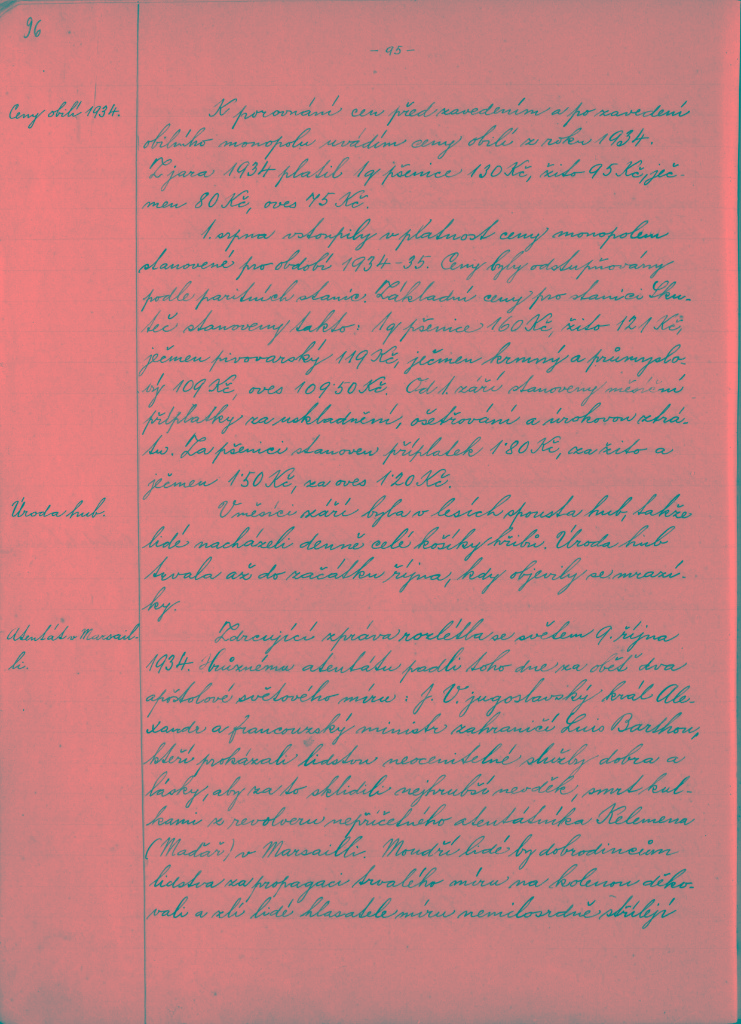 96
- 95 -
Ceny obilí 1934.
K porovnání cen před zavedením a po zavedení
obilního monopolu uvádím ceny obilí z roku 1934.
Z jara 1934 platil 1q pšenice 130 Kč, žito 95 Kč, ječ-
men 80 Kč, oves 75 Kč.
1. srpna vstoupily v platnost ceny monopolem
stanovené pro období 1934-35. Ceny byly odstupňovány
podle paritních stanic. Základní ceny pro stanici Sku-
teč stanoveny takto: 1q pšenice 160 Kč, žito 121 Kč,
ječmen pivovarský 119 Kč, ječmen krmný a průmyslo-
vý 109 Kč, oves 109·50 Kč. Od 1. září stanoveny měsíční
příplatky za uskladnění, ošetřování a úrokovou ztrá-
tu. Za pšenici stanoven příplatek 1·80 Kč, za žito a
ječmen 1·50 Kč, za oves 1·20 Kč.
Úroda hub.
V měsíci září byla v lesích spousta hub, takže
lidé nacházeli denně celé košíky hřibů. Úroda hub
trvala až do začátku října, kdy objevily se mrazí-
ky.
Atentát v Marsail-
li.
Zdrcující zpráva rozlétla se světem 9. října
1934. Hrůznému atentátu padli toho dne za oběť dva
apoštolové světového míru: J. V. jugoslavský král Ale-
xandr a francouzský ministr zahraničí Luis Barthou,
kteří prokázali lidstvu neocenitelné služby dobra a
lásky, aby za to sklidili nejhrubší nevděk, smrt kul-
kami z revolveru nepříčetného atentátníka Kelemena
(Maďar) v Marsailli. Moudří lidé by dobrodincům
lidstva za propagaci trvalého míru na kolenou děko-
vali a zlí lidé hlasatele míru nemilosrdně střílejí